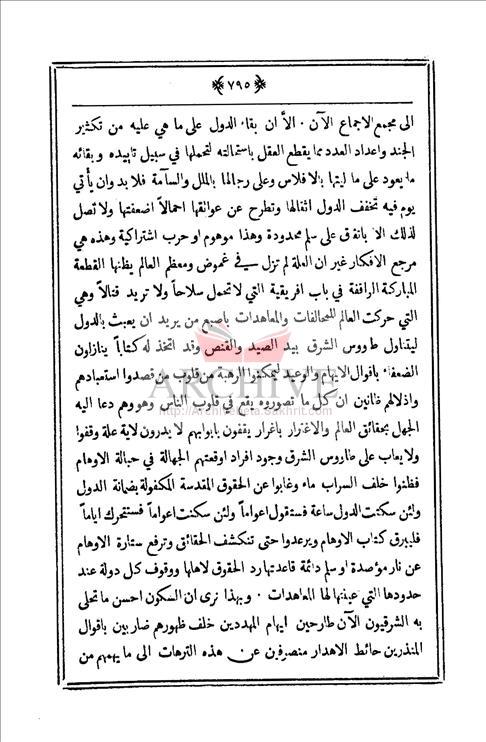 ﴿٧٩٥﴾
الى مجمع الاجماع الآن . الا ان بقاء الدول على ما هي عليه من تكثير
الجند واعداد العدد مما يقطع العقل باستمالته لتحملها في سبيل تاييده وبقائه
ما يعود على ماليتها بالافلاس وعلى رجالها بالملل والسآمة فلا بد وان يأتي
يوم فيه تخفف الدول اثقالها وتطرح عن عوائقها احمالاً اضعفتها ولا تصل
لذلك الا باتفاق على سلم محدودة وهذا موهوم او حرب اشتراكية وهذه هي
مرجع الافكار غير ان العلة لم تزل في غموض ومعظم العالم يظنها القطعة
المباركة الرافقة في باب افريقية التي لا تحمل سلاحاً ولا تريد قتالاً وهي
التي حركت العالم للمحالفات والمعاهدات باصبع من يريد ان يعبث بالدول
ليتناول طاووس الشرق بيد الصيد والقنص وقد اتخذ له كتاباً ينازلون
الضعفاء باقوال الايهام والوعيد ليمكنوا الرهبة من قلوب من قصدوا استعبادهم
واذلالهم ظانين ان كل ما تصوروه يقع في قلوب الناس وهو وهم دعا اليه
الجهل بحقائق العالم والاغترار باغرار يقفون بابوابهم لا يدرون لاية علة وقفوا
ولا يعاب على طاووس الشرق وجود افراد اوقعتهم الجهالة في حبالة الاوهام
فظنوا خلف السراب ماء وغابوا عن الحقوق المقدسة المكفولة بضمانة الدول
ولئن سكتت الدول ساعة فستقول اعواماً ولئن سكنت اعواماً فستتحرك اياماً
فليبرق كتاب الاوهام ويرعدوا حتى تنكشف الحقائق وترفع ستارة الاوهام
عن نار مؤصدة او سلم دائمة قاعدتها رد الحقوق لاهلها ووقوف كل دولة عند
حدودها التي عينتها لها المعاهدات . وبهذا نرى ان السكون احسن ما تحلى
به الشرقيون الآن طارحين ايهام المهددين خلف ظهورهم ضاربين باقوال
المنذرين حائط الاهدار منصرفين عن هذه الترهات الى ما يهمهم من
ARCHIVE